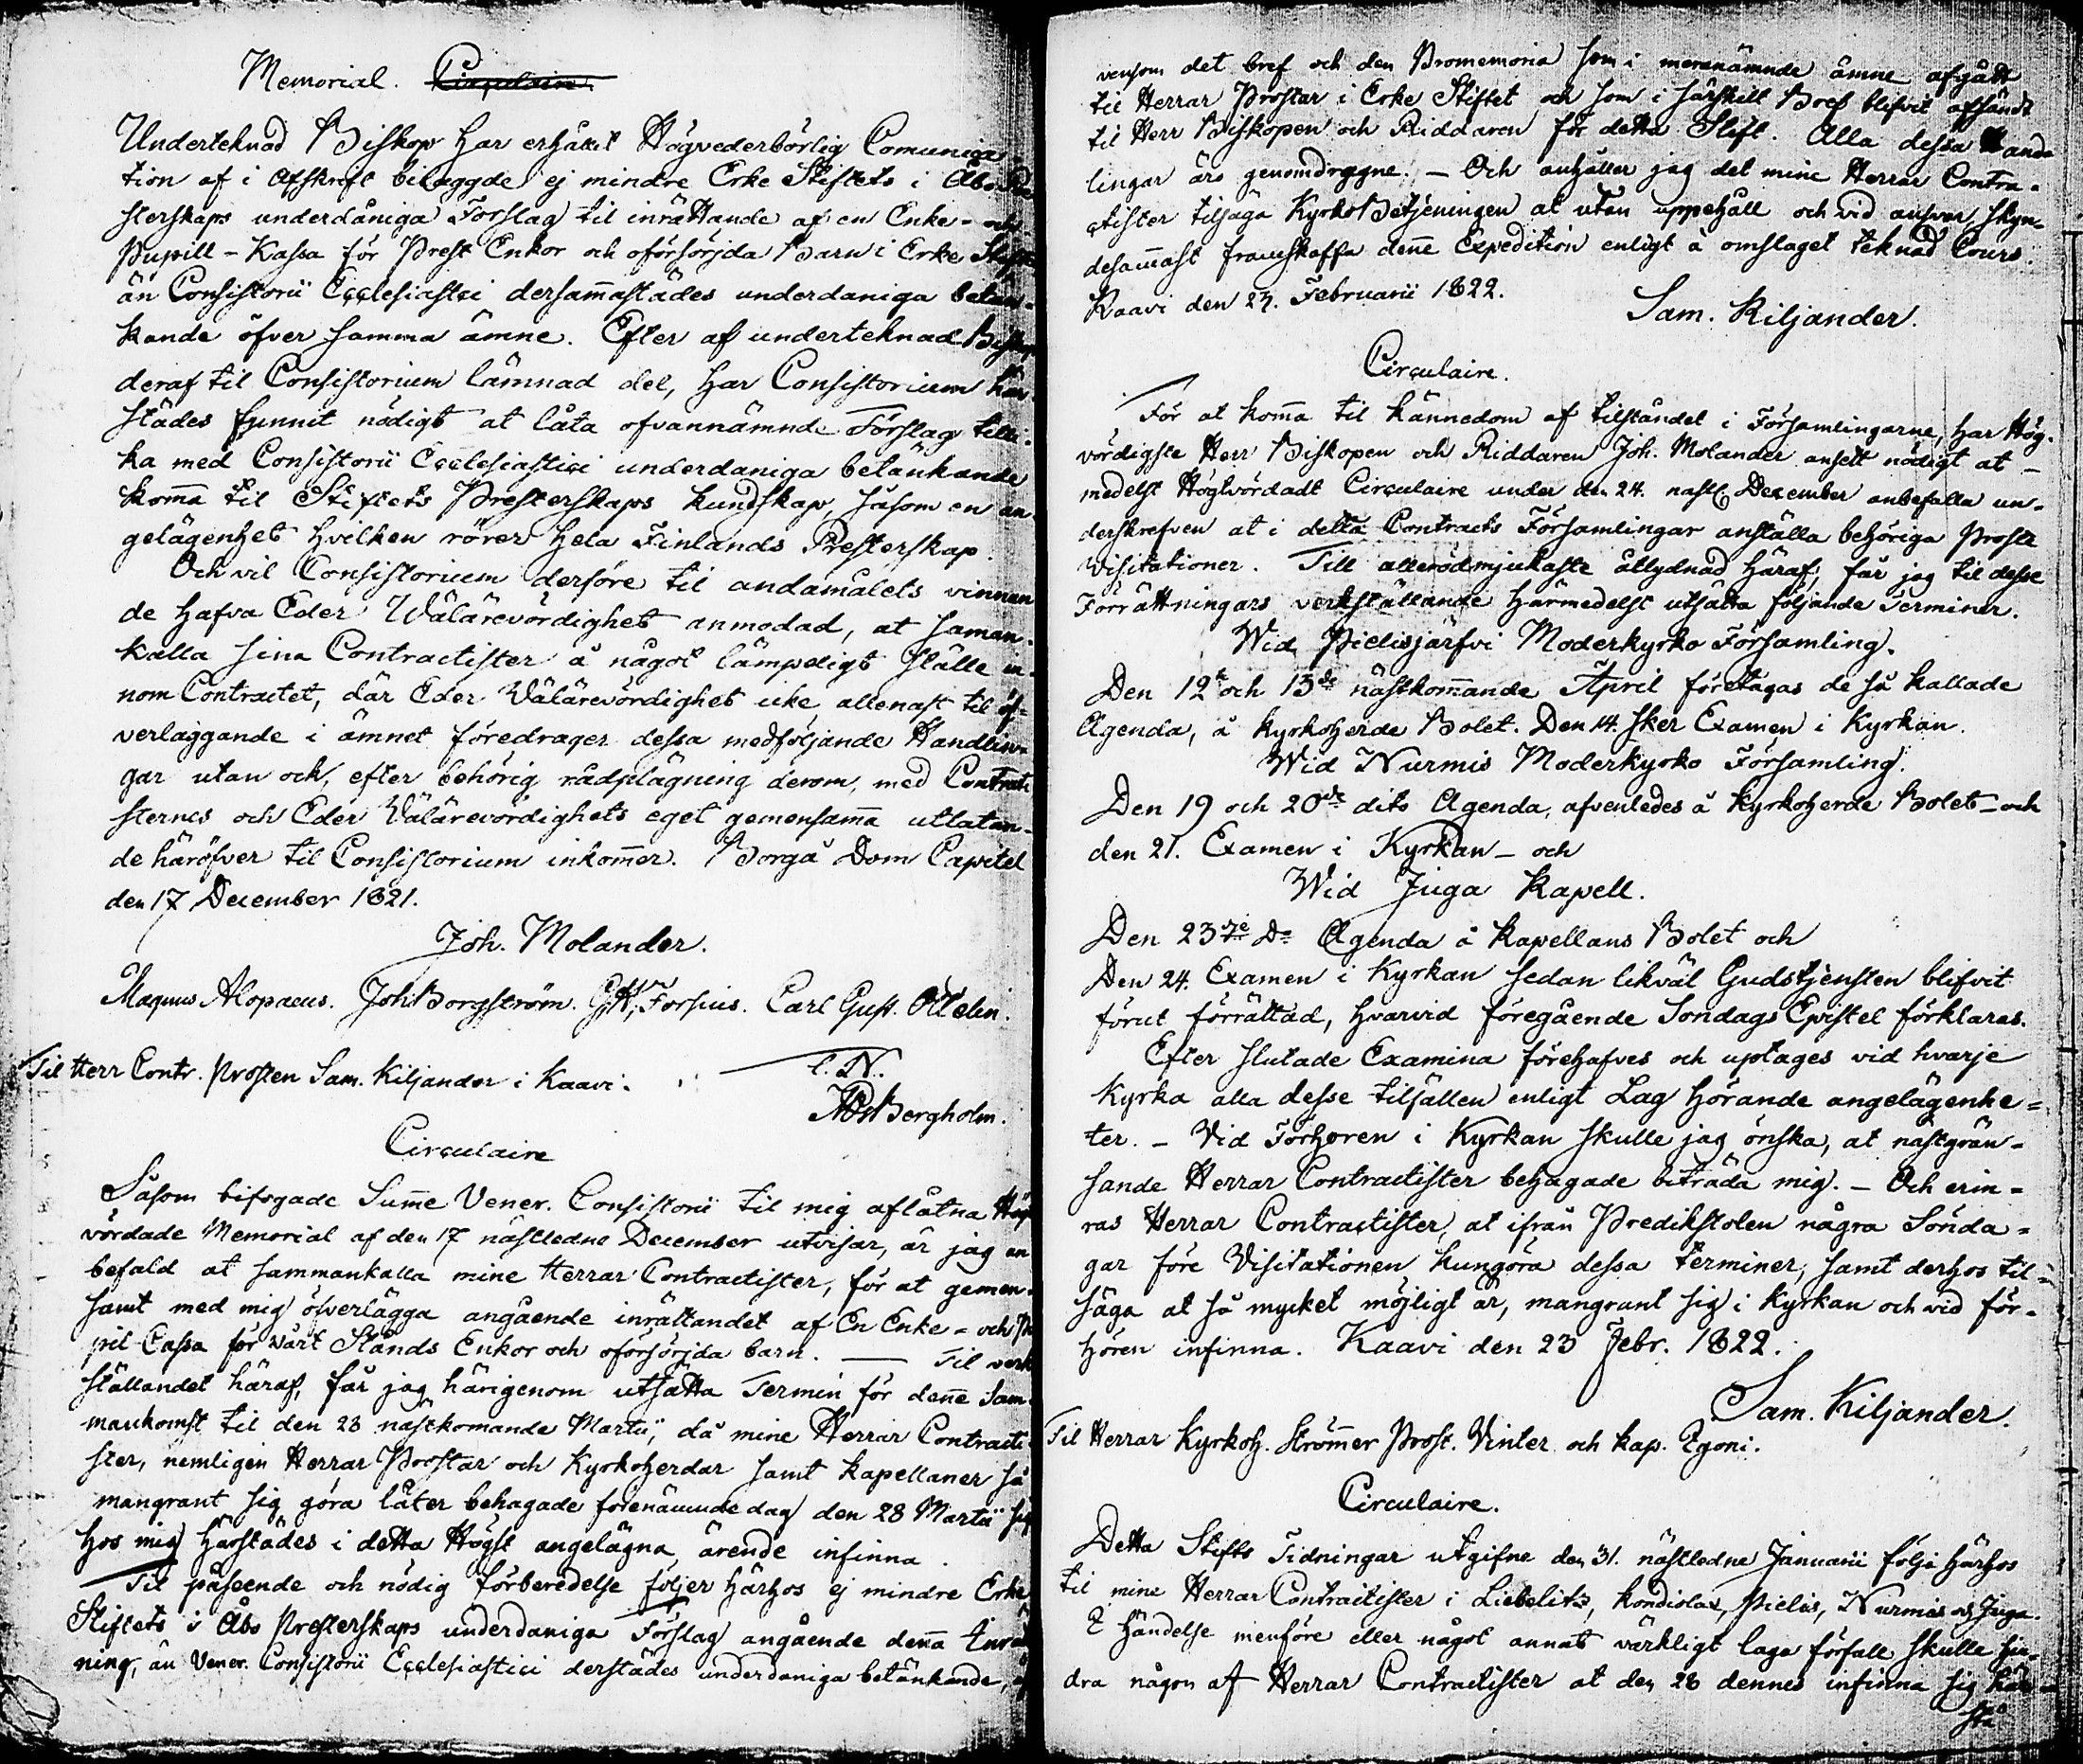 Memorial. Circulaire
Underteknad Biskop har erhållit Högvederbörlig Comunica-
tion af i Afskrift bilaggde ej mindre Erke Stiftets i Åbo Pre
sterskaps underdåniga Förslag til inrättande af en Enke- och
Pupill-Kassa för Prest Enkor och oförsörjda Barn i Erke Stiftet
än Consistorii Ecclesiastici dersamastädes underdaniga betän-
kande öfver samma ämne. Efter af underteknad Biskop
deraf til Consistorium lämnad del, har Consistorium här
städes funnit nödigt at låta ofvannämnde Förslag tilli-
ka med Consistorii Ecclesiastici underdaniga betänkande
koma til Stiftets Presterskaps kundskap, såsom en an-
gelägenhet hvilken rörer hela Finlands Presterskap.
Och vil Consistorium derföre til andamålets vinnan
de hafva Eder Wälärevördighet anmodad, at saman-
kalla sina Contractister å något lämpeligt ställe in-
nom Contractet, där Eder Välärevördighet icke allenast til öf-
verläggande i ämnet föredrager dessa medföljande Handlin-
gar utan och, efter behörig rådplägning derom, med Contracti
sternes och Eder Välärevördighets eget gemensama utlatan-
de häröfver til Consistorium inkomer. Borgå Dom Capitel
den 17 December 1821.
Joh. Molander.
Magnus Alopaeus. Joh Borgström. G.K. Forsius. Carl Gust. Ottelin.
Til Herr Contr. Prosten Sam. Kiljander i Kaavi.
L. N.
Bergholm.
Circulaire
Såsom bifogade Sume Vener. Consistorii til mig aflåtna Hög
vördade Memorial af den 17 nästledne December utvisar, är jag an
befald at sammankalla mine Herrar Contractister, för at gemen-
samt med mig öfverlägga angående inrättandet af En Enke- och Pu
pil Cassa för vårt Stånds Enkor och oförsörjda barn. — Til verk
ställandet häraf, får jag härigenom utsätta Termin för dene Sam
mankomst til den 28 nästkomande Martii, då mine Herrar Contracti
ster, nemligen Herrar Prostar och Kyrkoherdar samt kapellaner så
mangrant sig göra låter behagade förenämnde dag den 28 Martii sig
hos mig härstädes i detta Högst angelägna ärende infinna.
Til påseende och nödig förberedelse följer härhos ej mindre Erke
Stiftets i Åbo Presterskaps underdaniga Förslag angående dena Inrätt
ning, än Vener. Consistorii Ecclesiastici derstädes underdaniga betänkande,
vensom det bref och den Promemoria som i merenämnde ämne afgått
til Herrar Prostar i Erke Stiftet och som i särskilt Bref blifvit afsändt
til Herr Biskopen och Riddaren för detta Stift. Alla dessa Hand
lingar äro genomdragne. — Och anhåller jag det mine Herrar Contra-
ctister tilsäga KyrkoBetjeningen at utan uppehåll och vid ansvar skyn-
desamast framskaffa dene Expedition enligt å omslaget teknad Cours.
Kaavi den 23. Februarii 1822.
Sam. Kiljander.
Circulaire.
För at koma til kännedom af tilståndet i Församlingarne, har Hög-
vördigste Herr Biskopen och Riddaren Joh. Molander ansett nödigt at —
medelst Högtvördadt Circulaire under den 24. nästl. December anbefalla un-
derskrefven at i detta Contracts Församlingar anställa behöriga Prosts
Visitationer. Till allerödmjukaste åtlydnad häraf, får jag til desse
Förrättningars verkställande härmedelst utsätta följande Terminer.
Wid Pielisjärfvi Moderkyrko Församling.
Den 12te och 13de nästkomande April företagas de så kallade
Agenda, å kyrkoherde Bolet. Den 14. sker Examen i Kyrkan.
Wid Nurmis Moderkyrko Församling.
Den 19 och 20de dito Agenda, afvenledes å kyrkoherde Bolet — och
den 21. Examen i Kyrkan — och
Wid Juga Kapell.
Den 23de Do Agenda å kapellans Bolet och
Den 24. Examen i Kyrkan sedan likväl Gudstjensten blifvit
förut förrättad, hvarvid föregående Sondags Epistel förklaras.
Efter slutade Examina förehafves och uptages vid hvarje
Kyrka alla desse tilfällen enligt Lag hörande angelägenhe=
ter. — Vid Förhören i Kyrkan skulle jag önska, at nastgrän-
sande Herrar Contractister behagade biträda mig. — Och erin=
ras Herrar Contractister, at ifrån Predikstolen några Sönda=
gar före Visitationen kungöra dessa terminer, samt derhos til=
säga at så mycket möjligt är, mangrant sig i Kyrkan och vid för-
hören infinna. Kaavi den 23 Febr. 1822.
Sam. Kiljander.
Til Herrar Kyrkoh. Strömer Prost. Vinter och kap. Egoni.
Circulaire.
Detta Stifts Tidningar utgifne den 31. nästledne Januarii följe härhos
til mine Herrar Contractister i Liebelits, Kondiolax, Pielis, Nurmis och Juga.
I händelse menföre eller något annat värkligt laga förfall skulle hin-
dra någon af Herrar Contractister at den 28 dennes infinna sig här-
stä